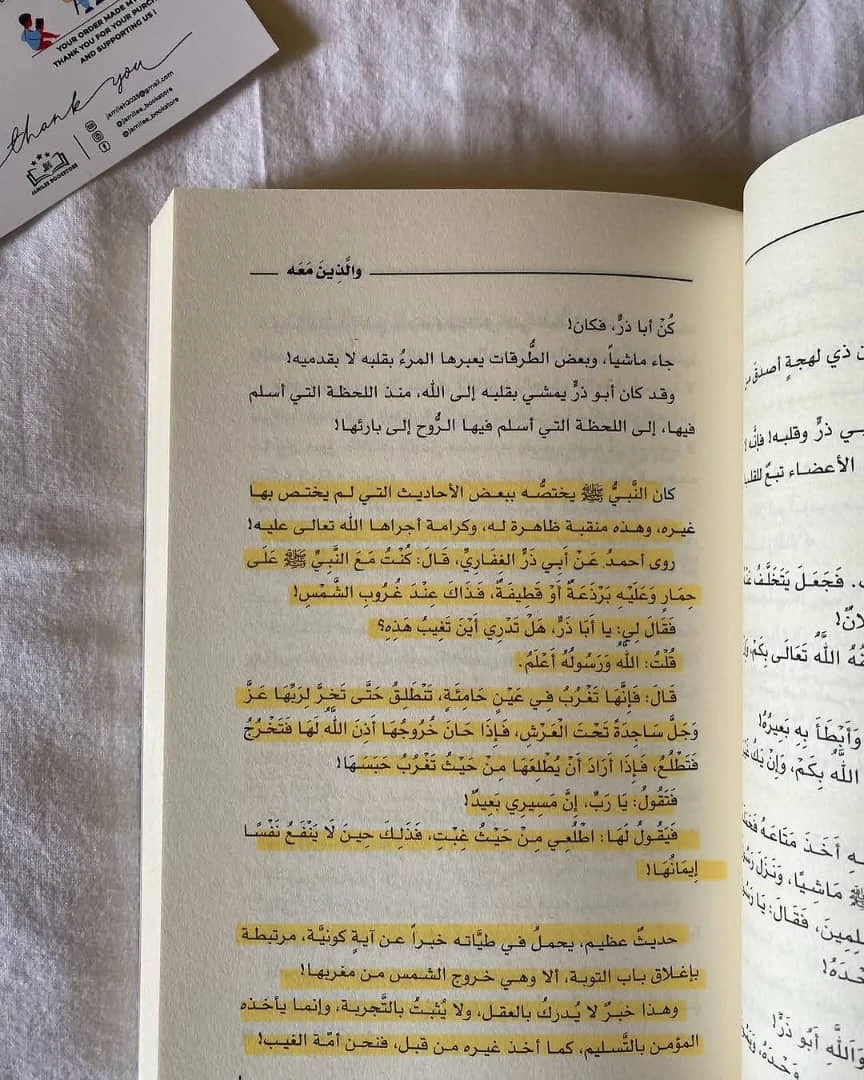 YOUR ORDER MADE MY
THANK YOU FOR YOUR PURCH
AND SUPPORTING US!
thank you
jamilee2025@gmail.com
@jamilee_bookstore
@jamilee_bookstore
JAMILEE BOOKSTORE
والَّذِينَ مَعَه
كُنْ أبا ذرٍّ، فكان!
جاء ماشياً، وبعض الطُّرقات يعبرها المرءُ بقلبه لا بقدميه!
وقد كان أبو ذرٍّ يمشي بقلبه إلى الله، منذ اللحظة التي أسلم
فيها، إلى اللحظة التي أسلم فيها الرُّوح إلى بارئها!
كان النَّبيُّ ﷺ يختصُّه ببعض الأحاديث التي لم يختص بها
غيره، وهذه منقبة ظاهرة له، وكرامة أجراها الله تعالى عليه!
روى أحمدُ عَنْ أَبي ذَرٍّ الغِفَاريِّ، قَالَ: كُنْتُ مَعَ النَّبيِّ ﷺ عَلَى
حِمَارٍ وَعَلَيْهِ بَرْذَعَةٌ أَوْ قَطِيفَةٌ، فَذَاكَ عِنْدَ غُرُوبِ الشَّمْسِ!
فَقَالَ لِي: يا أَبَا ذَرٍّ، هَلْ تَدْرِي أَيْنَ تَغِيبُ هَذِهِ؟
قُلْتُ: اللَّهُ وَرَسُولُهُ أَعْلَمُ.
قَالَ: فَإِنَّهَا تَغْرُبُ فِي عَيْنٍ حَامِئَةٍ، تَنْطَلِقُ حَتَّى تَخِرَّ لِرَبِّهَا عَزَّ
وَجَلَّ سَاجِدَةً تَحْتَ الْعَرْشِ، فَإِذَا حَانَ خُرُوجُهَا أَذِنَ اللَّهُ لَهَا فَتَخْرُجُ
فَتَطْلُعُ، فَإِذَا أَرَادَ أَنْ يُطْلِعَهَا مِنْ حَيْثُ تَغْرُبُ حَبَسَهَا!
فَتَقُولُ: يَا رَبِّ، إِنَّ مَسِيرِي بَعِيدٌ!
فَيَقُولُ لَهَا: اطْلُعِي مِنْ حَيْثُ غِبْتِ، فَذَلِكَ حِينَ لَا يَنْفَعُ نَفْسًا
إِيمَانُهَا!
حديثٌ عظيم، يحملُ في طيَّاته خبراً عن آيةٍ كونيَّة، مرتبطة
بإغلاق باب التوبة، ألا وهي خروج الشمس من مغربها!
وهذا خبرٌ لا يُدركُ بالعقل، ولا يُثبتُ بالتَّجربة، وإنما يأخذه
المؤمن بالتَّسليم، كما أخذ غيره من قبل، فنحن أمّة الغيب!
ذي لهجةٍ أصدق
ذرٍّ وقلبه! فإنَّ
الأعضاء تبعٌ للقلب
فَجَعَلَ يَتَخَلَّفُ
اللَّهُ تَعَالَى بِكَمْ،
وَأَبْطَأَ بِهِ بَعِيرُهُ!
اللَّهُ بِكَمْ، وَإِنْ يَكُ
أَخَذَ مَتَاعَهُ
ﷺ مَاشِيًا، وَنَزَلَ
فَقَالَ: يَا
وَاللَّهِ أَبُو ذَرٍّ!
وَحْدَهُ،